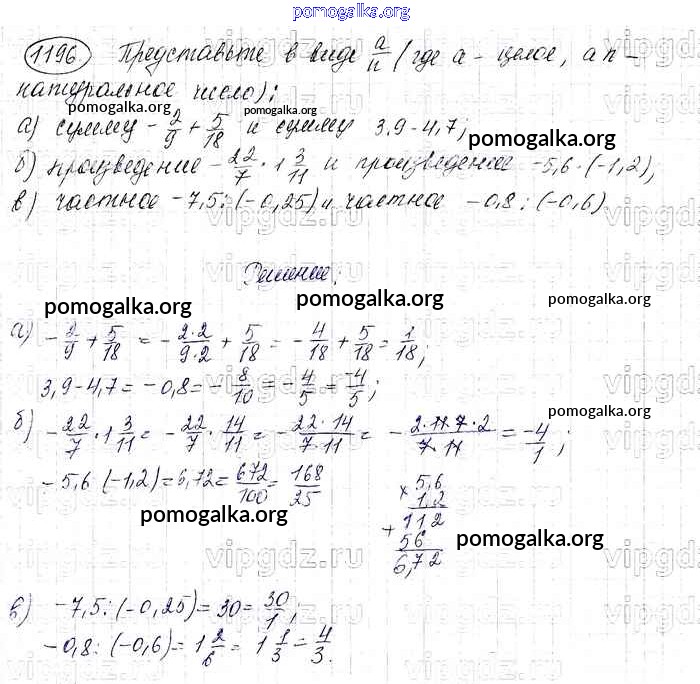 pomogalka.org
1196 Представьте в виде a/n (где a - целое, а n -
натуральное число):
pomogalka.org pomogalka.org
а) сумму -2/9 + 5/18 и сумму 3,9-4,7;
pomogalka.org
б) произведение -22/7 · 1 3/11 и произведение -5,6·(-1,2);
в) частное -7,5:(-0,25) и частное -0,8:(-0,6)
vipgdz.ru
Решение:
pomogalka.org pomogalka.org pomogalka.org
а) -2/9 + 5/18 = -2·2/9·2 + 5/18 = -4/18 + 5/18 = 1/18;
3,9-4,7 = -0,8 = -8/10 = -4/5 = -4/5;
pomogalka.org
б) -22/7 · 1 3/11 = -22/7 · 14/11 = -22·14/7·11 = -2·11·7·2/7·11 = -4/1;
-5,6(-1,2) = 6,72 = 672/100 = 168/25
× 5,6
1,2
+ 112
56
6,72
pomogalka.org pomogalka.org
vipgdz.ru
в) -7,5:(-0,25) = 30 = 30/1;
-0,8:(-0,6) = 1 2/6 = 1 1/3 = 4/3.